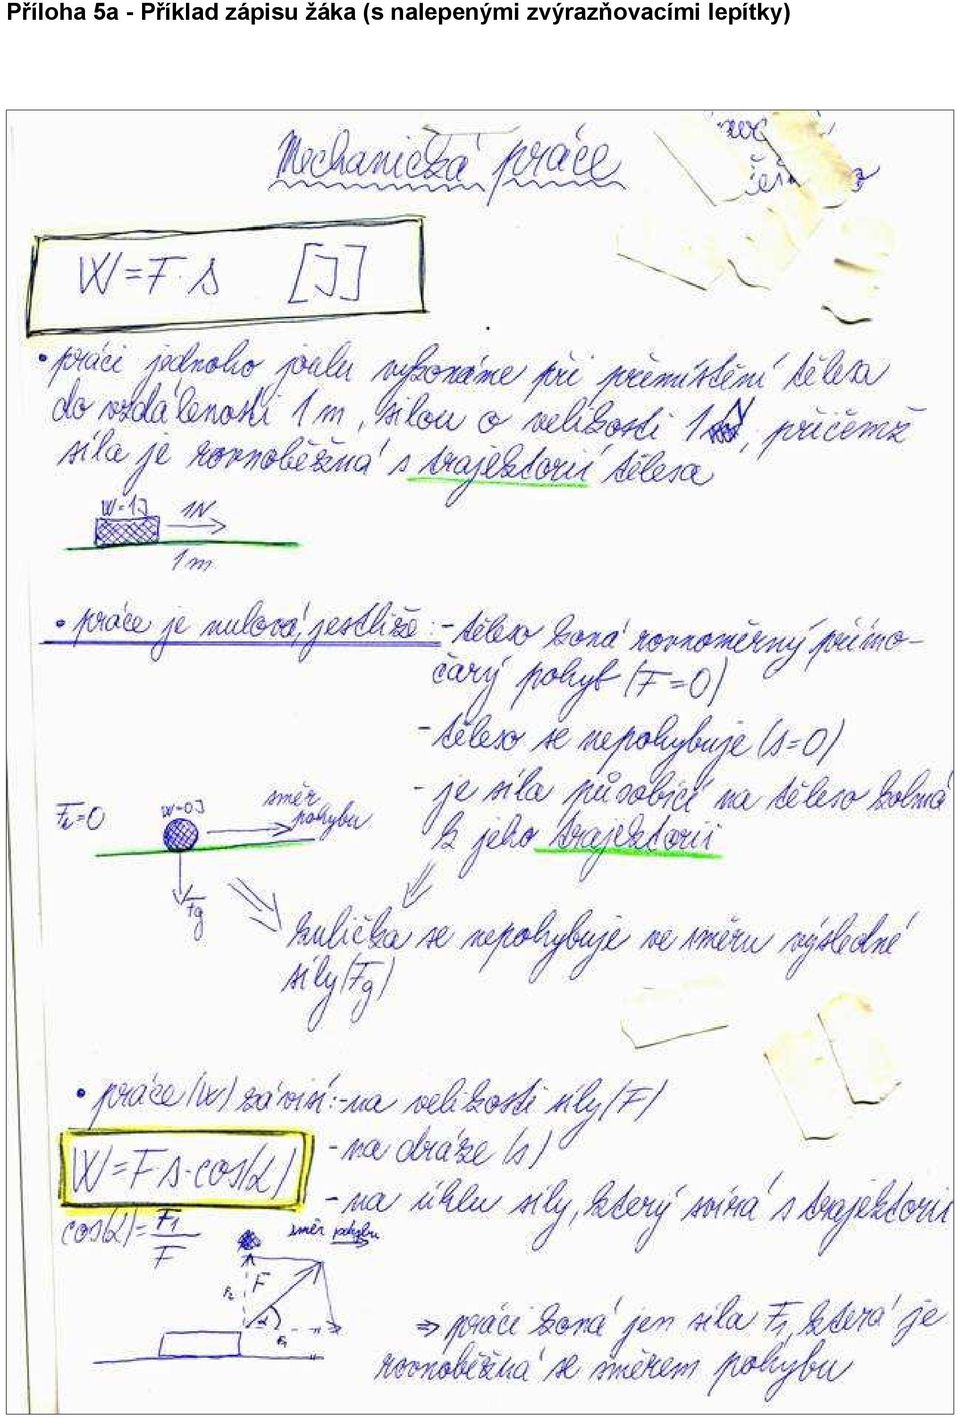 Příloha 5a - Příklad zápisu žáka (s nalepenými zvýrazňovacími lepítky)
Mechanická práce
W=F·s [J]
• práci jednoho joulu vykonáme při přemístění tělesa
do vzdálenosti 1m, silou o velikosti 1N, přičemž
síla je rovnoběžná s trajektorií tělesa
W=1J 1N
1m
• práce je nulová, jestliže: - těleso koná rovnoměrný přímo-
čarý pohyb (F=0)
- těleso se nepohybuje (s=0)
- je síla působící na těleso kolmá
k jeho trajektorii
W=0J směr
pohybu
Fg
kulička se nepohybuje ve směru výsledné
síly (Fg)
• práce (W) závisí: - na velikosti síly (F)
- na dráze (s)
- na úhlu síly, který svírá s trajektorií
W=F·s·cos(α)
cos(α)=F1/F
směr pohybu
F2 F
α
F1
⇒ práci koná jen síla F1, která je
rovnoběžná se směrem pohybu